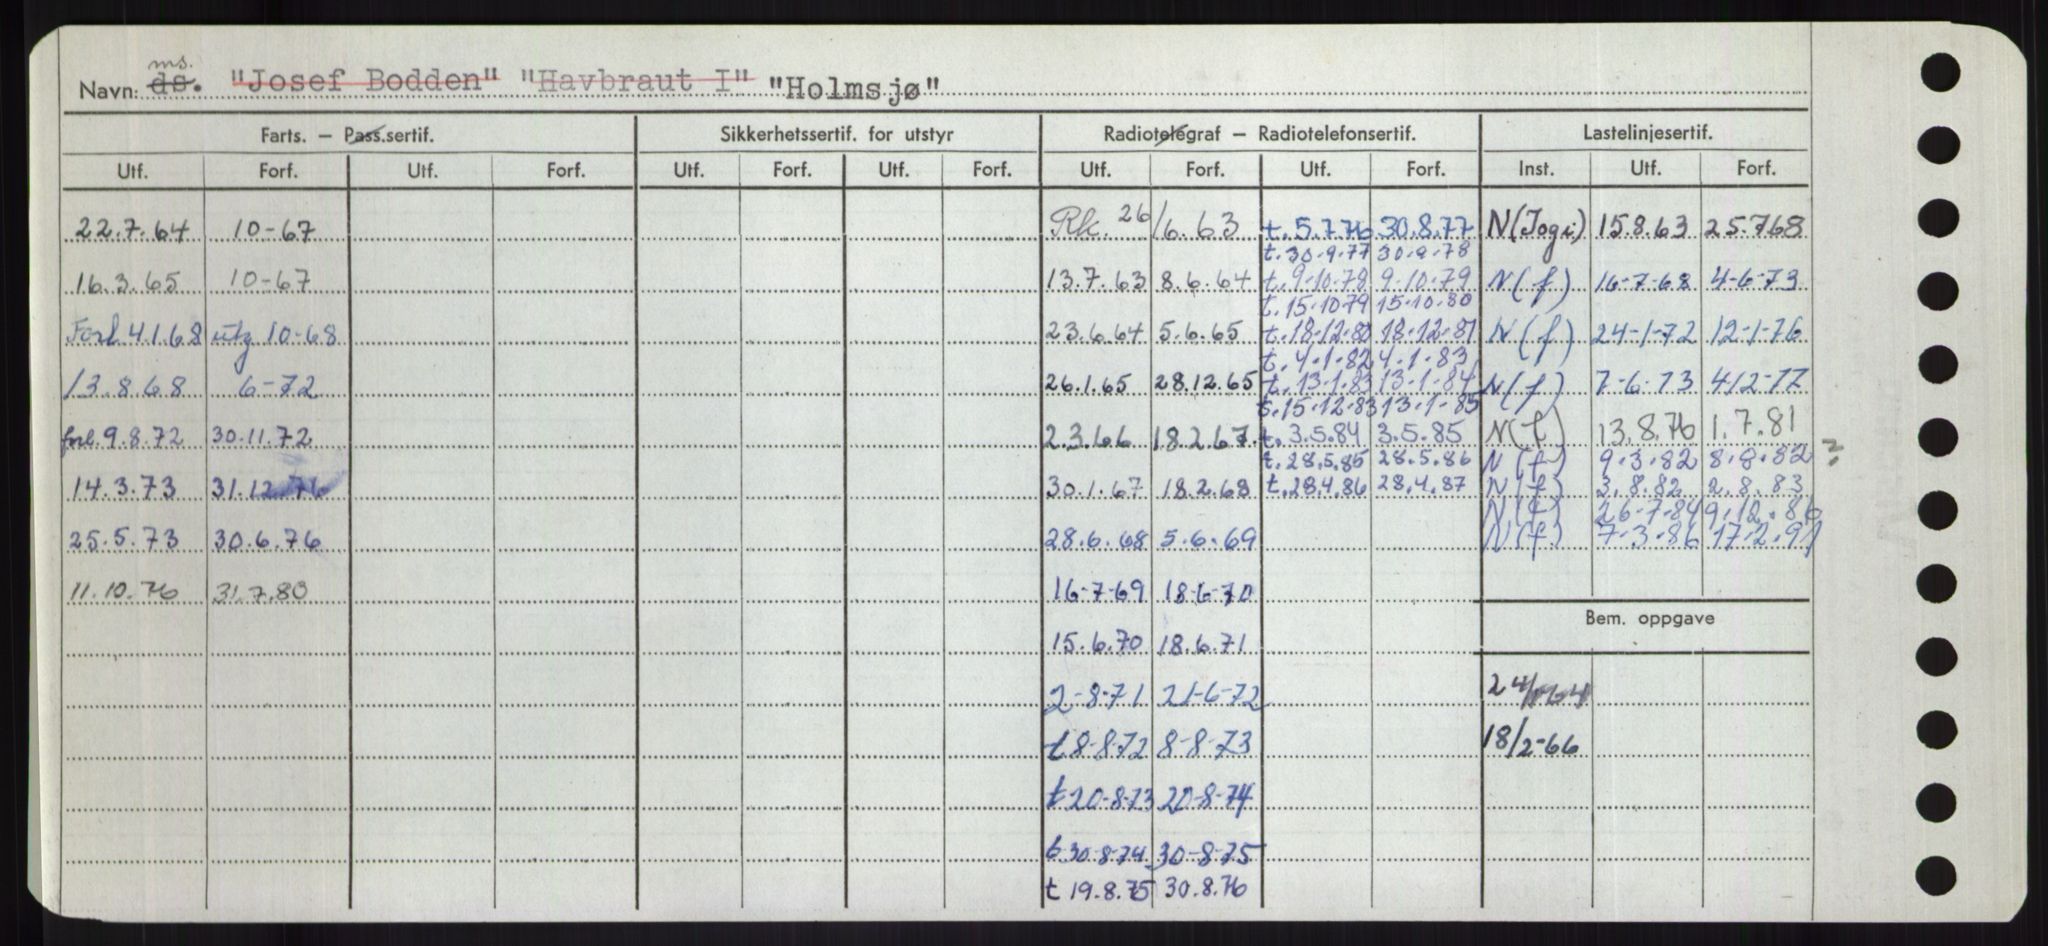 Navn: ds. ms. "Josef Bodden" "Havbraut I" "Holmsjø"
Farts. — Pass.sertif. Sikkerhetssertif. for utstyr Radiotelegraf — Radiotelefonsertif. Lastelinjesertif.
Utf. Forf. Utf. Forf. Utf. Forf. Utf. Forf. Utf. Forf. Utf. Forf. Inst. Utf. Forf.
22.7.64 10-67 Rk. 26/6.63 t. 5.7.76 30.8.77 N(Jogi) 15.8.63 25.768
t. 30.9.77 30.9.78
16.3.65 10-67 13.7.63 8.6.64 t. 9.10.78 9.10.79 N(f) 16-7-68 4-6-73
t. 15.10.79 15.10.80
Forl 4.1.68 utg 10-68 23.6.64 5.6.65 t. 18.12.80 18.12.81 N(f) 24-1-72 12-1-76
t. 4.1.82 4.1.83
13.8.68 6-72 26.1.65 28.12.65 t. 13.1.83 13.1.84 N(f) 7-6-73 4/2-77
t. 15.12.83 13.1.85
forl. 9.8.72 30.11.72 2.3.66 18.2.67. t. 3.5.84 3.5.85 N(f) 13.8.76 1.7.81
t. 28.5.85 28.5.86 N(f) 9.3.82 8.8.82 ?
14.3.73 31.12.76 30.1.67 18.2.68 t. 28.4.86 28.4.87 N(f) 3.8.82 2.8.83
N(f) 26-7-84 9.12.86
25.5.73 30.6.76 28.6.68 5.6.69 N(f) 7-3-86 17.2.91
11.10.76 31.7.80 16-7-69 18-6-70
Bem. oppgave
15.6.70 18.6.71
2-8-71 21-6-72 24/
t 8-8-72 8-8-73 18/2-66
t 20-8-73 20-8-74
t 30-8-74 30-8-75
t 19.8.75 30.8.76